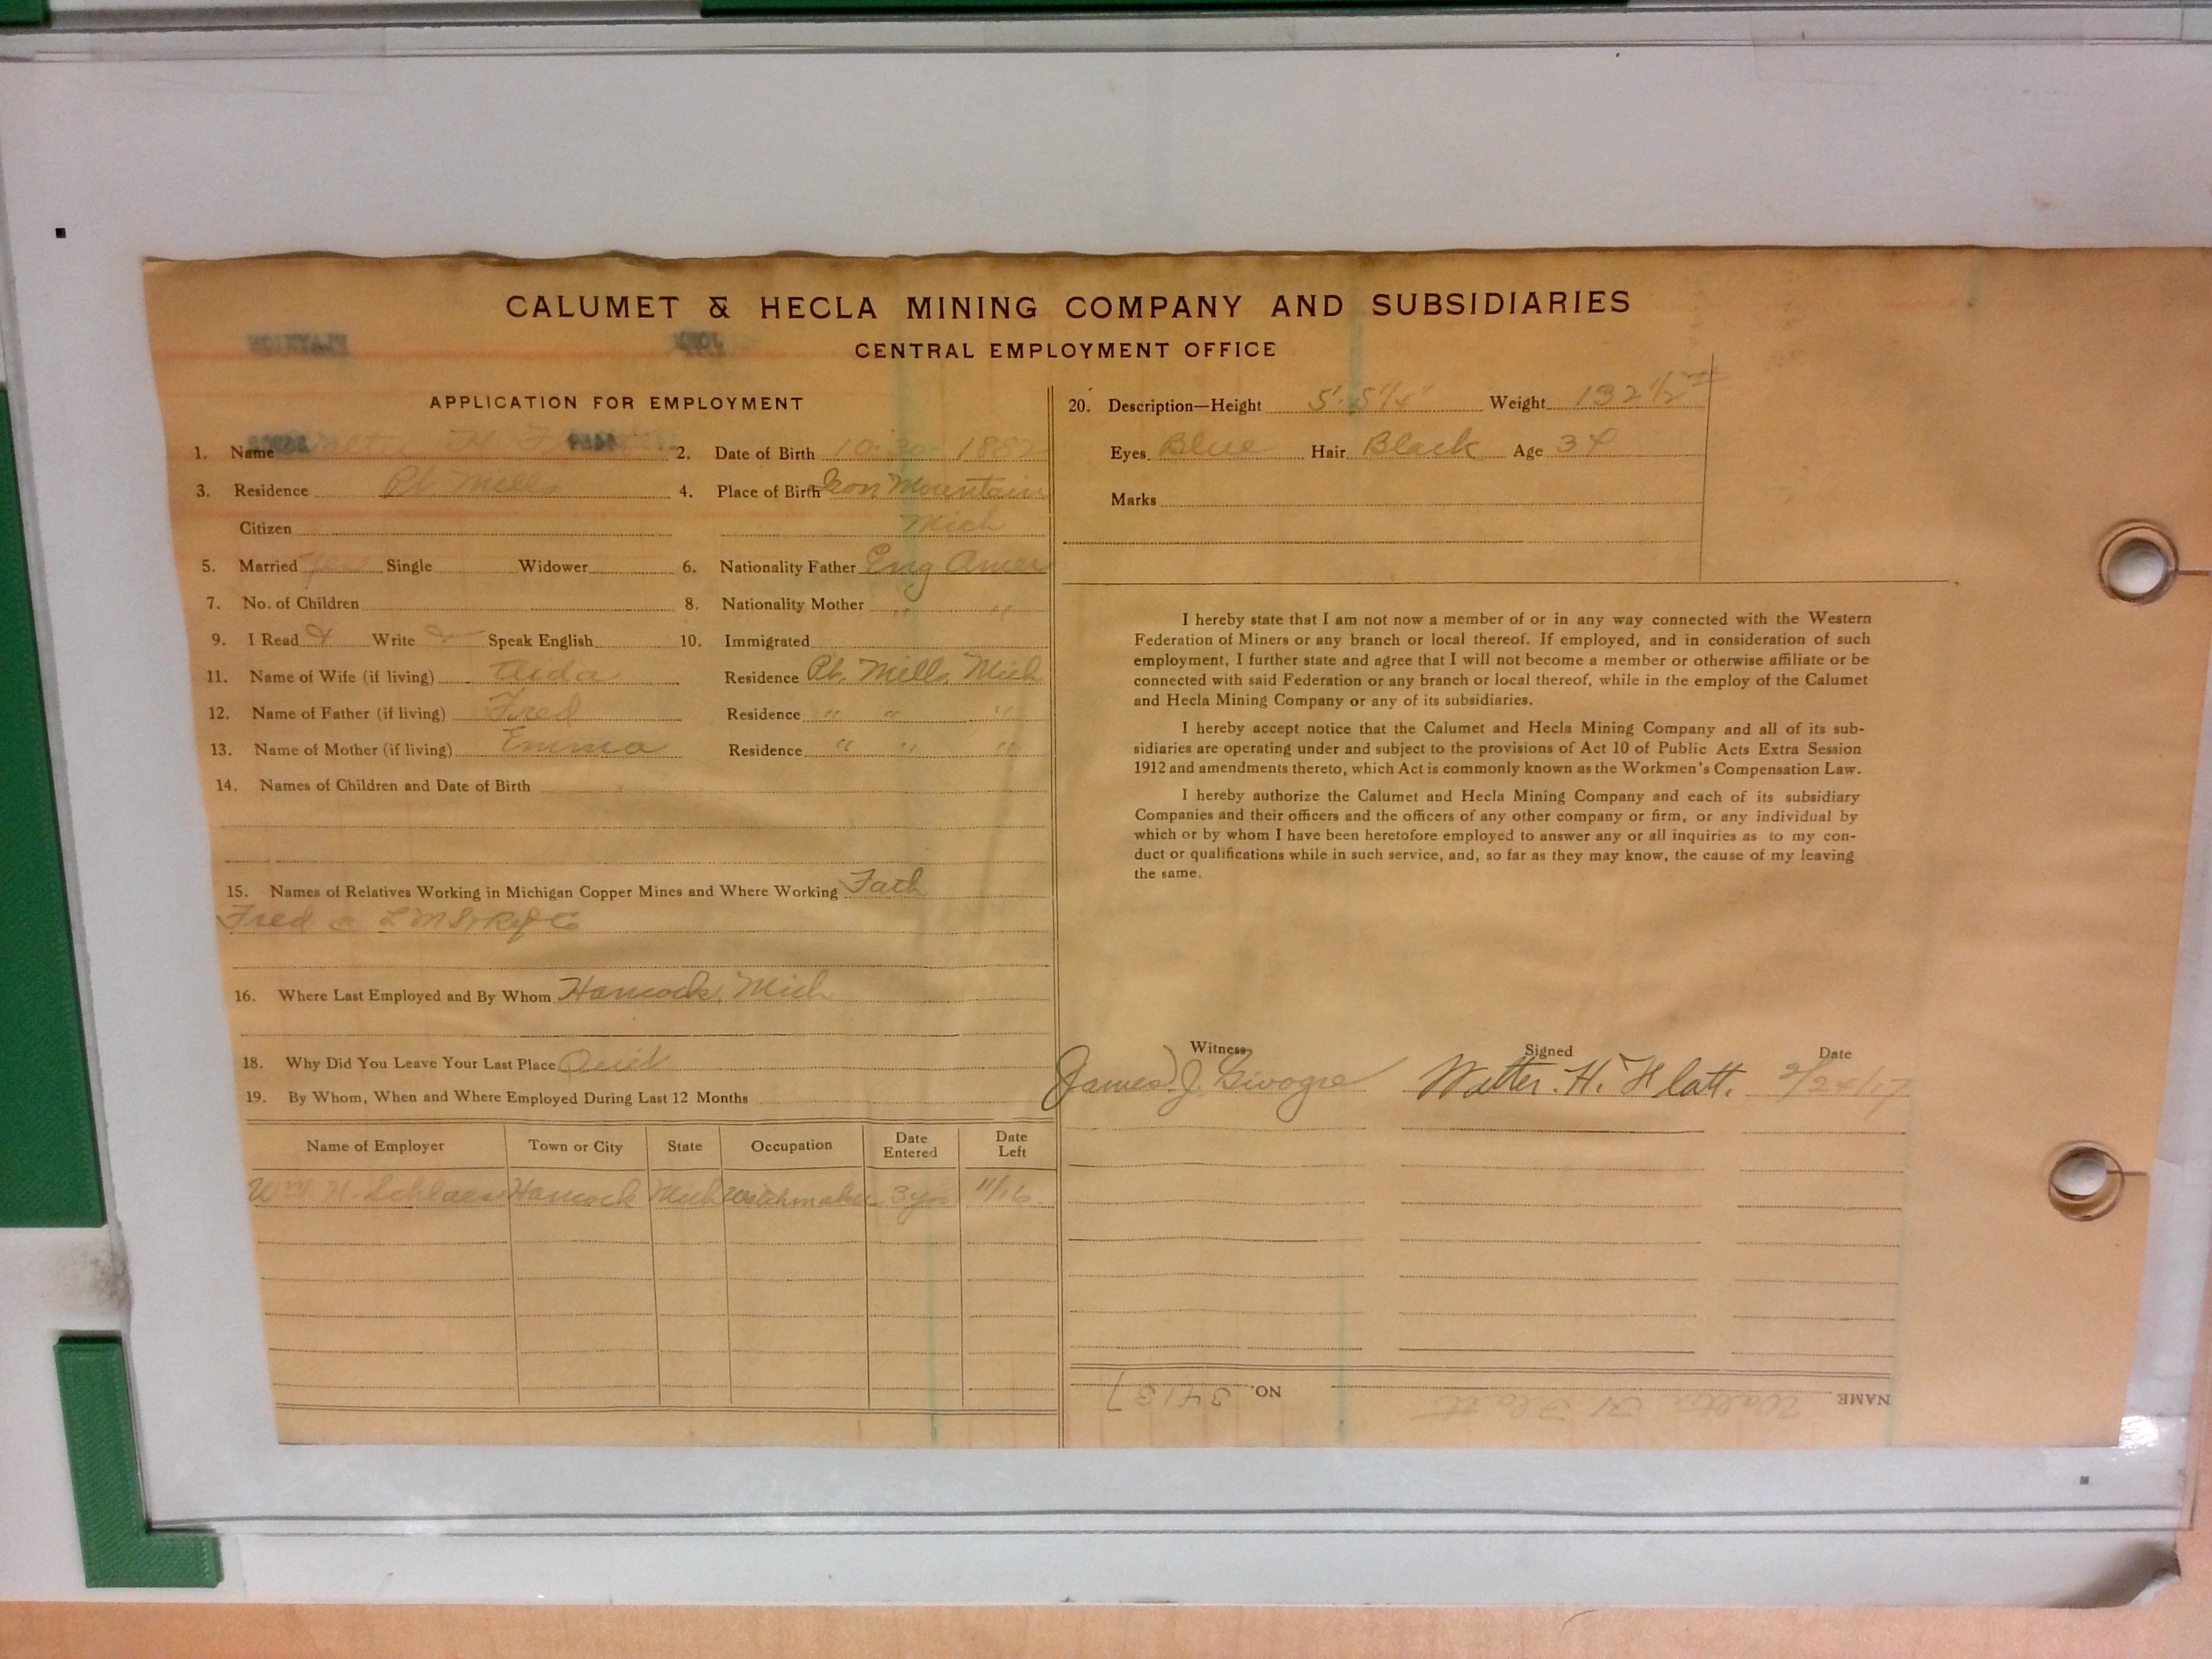 CALUMET & HECLA MINING COMPANY AND SUBSIDIARIES
CENTRAL EMPLOYMENT OFFICE
APPLICATION FOR EMPLOYMENT
1. Name Walter H 2. Date of Birth 10-30-1882
3. Residence Pt. Mills 4. Place of Birth Iron Mountain
Citizen Mich
5. Married Single Widower 6. Nationality Father Eng Amer
7. No. of Children 8. Nationality Mother " "
9. I Read Write Speak English 10. Immigrated
11. Name of Wife (if living) Aida Residence Pt. Mills, Mich
12. Name of Father (if living) Fred Residence " " "
13. Name of Mother (if living) Emma Residence " " "
14. Names of Children and Date of Birth
15. Names of Relatives Working in Michigan Copper Mines and Where Working Fath
Fred
16. Where Last Employed and By Whom Hancock, Mich
18. Why Did You Leave Your Last Place Quit
19. By Whom, When and Where Employed During Last 12 Months
Name of Employer Town or City State Occupation Date Entered Date Left
Wm H. Hancock Mich Watchmaker 3 yrs 11/16
20. Description—Height 5'-5 1/4" Weight 132 1/2 #
Eyes Blue Hair Black Age 34
Marks
I hereby state that I am not now a member of or in any way connected with the Western
Federation of Miners or any branch or local thereof. If employed, and in consideration of such
employment, I further state and agree that I will not become a member or otherwise affiliate or be
connected with said Federation or any branch or local thereof, while in the employ of the Calumet
and Hecla Mining Company or any of its subsidiaries.
I hereby accept notice that the Calumet and Hecla Mining Company and all of its sub-
sidiaries are operating under and subject to the provisions of Act 10 of Public Acts Extra Session
1912 and amendments thereto, which Act is commonly known as the Workmen's Compensation Law.
I hereby authorize the Calumet and Hecla Mining Company and each of its subsidiary
Companies and their officers and the officers of any other company or firm, or any individual by
which or by whom I have been heretofore employed to answer any or all inquiries as to my con-
duct or qualifications while in such service, and, so far as they may know, the cause of my leaving
the same.
Witness Signed Date
James J. Walter. H. Flatt. 2/24/17
NAME Walter H Flatt NO. 34137